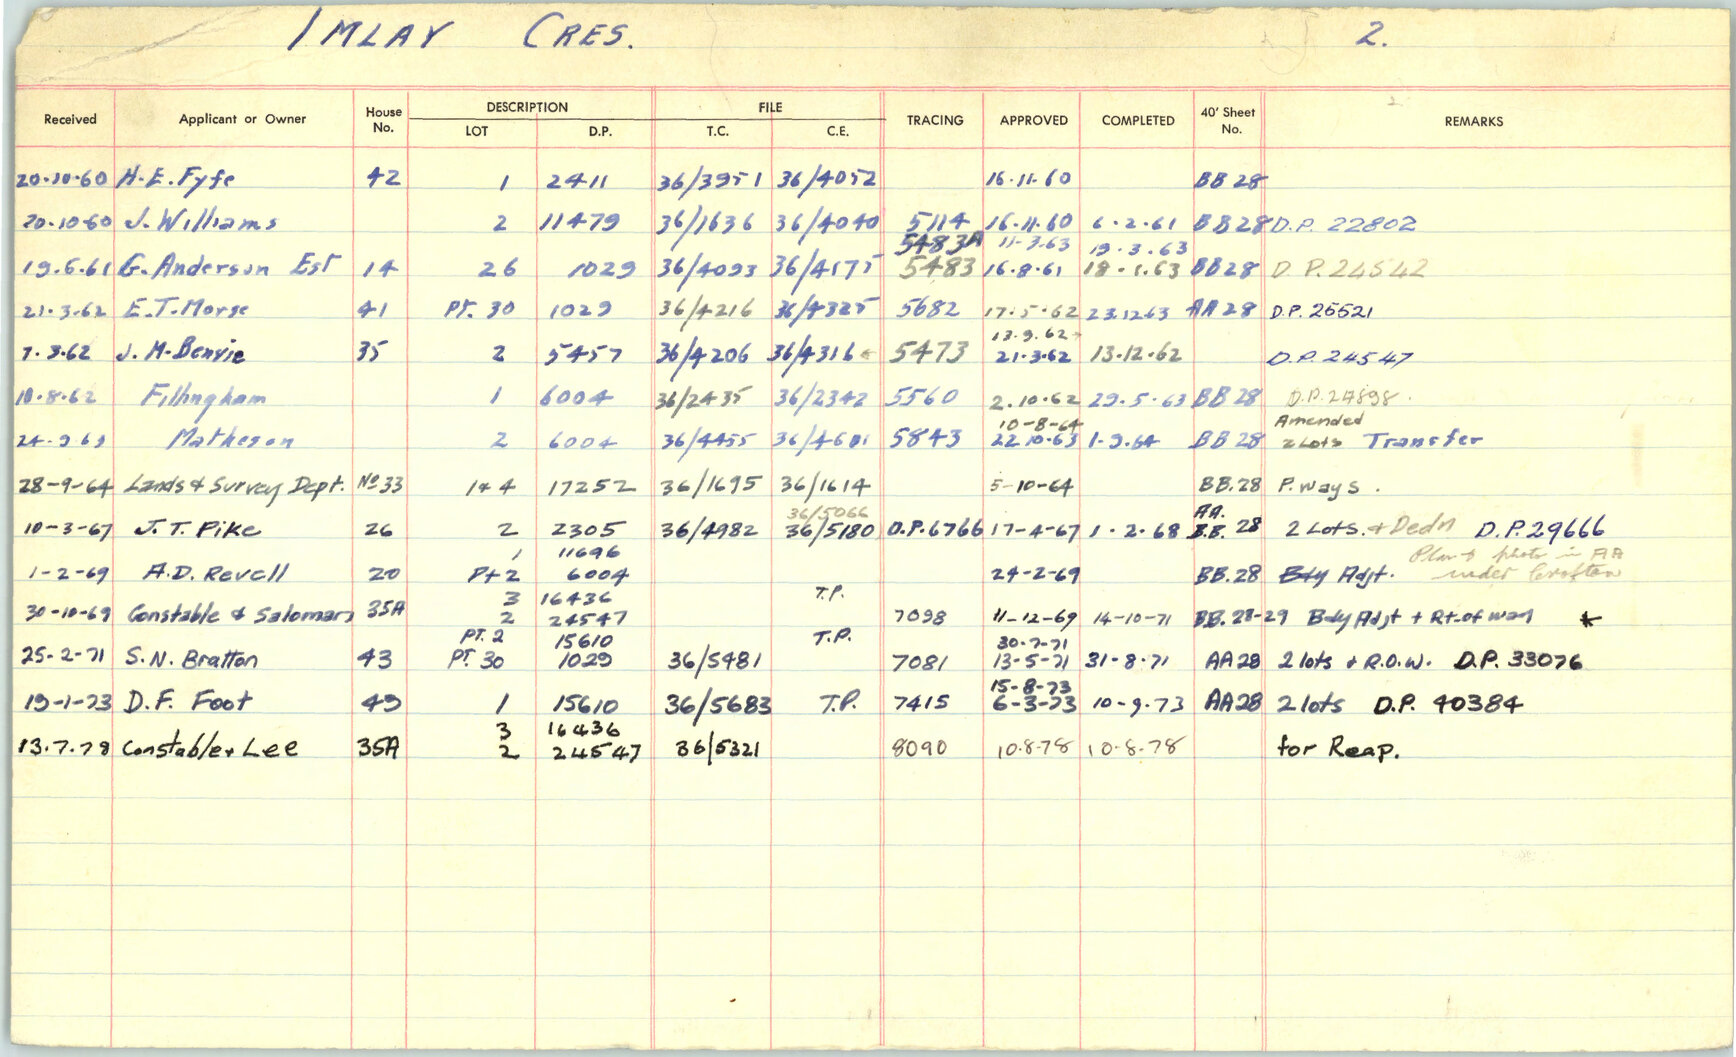 IMLAY CRES. 2.
Received Applicant or Owner House No. DESCRIPTION LOT D.P. FILE T.C. C.E. TRACING APPROVED COMPLETED 40' Sheet No. REMARKS
20.10.60 H.E. Fyfe 42 1 2411 36/3951 36/4052 16.11.60 BB 28
20.10.60 J. Williams 2 11479 36/1636 36/4040 5114 16.11.60 6.2.61 BB 28 D.P. 22802
5483A 11-3.63 19.3.63
19.6.61 G. Anderson Est 14 26 1029 36/4093 36/4175 5483 16.8.61 18.1.63 BB 28 D.P. 24542
21.3.62 E.T. Morse 41 PT. 30 1029 36/4216 36/4325 5682 17.5.62 23.12.63 AA 28 D.P. 25521
13.9.62
7.3.62 J.M. Benvie 35 2 5457 36/4206 36/4316 5473 21.3.62 13.12.62 D.P. 24547
10.8.62 Fillingham 1 6004 36/2435 36/2342 5560 2.10.62 29.5.63 BB 28 D.P. 24898.
10-8-64 Amended
24.9.63 Matheson 2 6004 36/4455 36/4601 5843 22.10.63 1-9.64 BB 28 2 Lots Transfer
28-9-64 Lands & Survey Dept. No 33 1 & 4 17252 36/1695 36/1614 5-10-64 BB.28 P. ways.
36/5066 AA.
10-3-67 J.T. Pike 26 2 2305 36/4982 36/5180 D.P. 6766 17-4-67 1-2-68 B.B. 28 2 Lots. & Dedn D.P. 29666
1 11696 Plan & photo in AA
1-2-69 A.D. Revell 20 Pt 2 6004 24-2-69 BB.28 Bdy Adjt. under Crofton
3 16436 T.P.
30-10-69 Constable & Salomans 35A 2 24547 7098 11-12-69 14-10-71 BB.28-29 Bdy Adjt + Rt. of way *
PT. 2 15610 T.P. 30-7-71
25-2-71 S.N. Bratton 43 PT. 30 1029 36/5481 7081 13-5-71 31-8-71 AA 28 2 lots + R.O.W. D.P. 33076
15-8-73
19-1-73 D.F. Foot 49 1 15610 36/5683 T.P. 7415 6-3-73 10-9-73 AA 28 2 lots D.P. 40384
3 16436
13.7.78 Constable & Lee 35A 2 24547 36/5321 8090 10.8.78 10.8.78 for Reap.